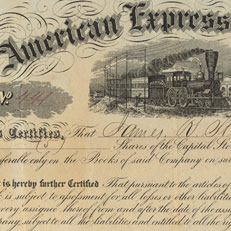 American Express
No
s Certifies, That James
Shares of the Capital Sto
ferable only on the Books of said Company on su
t is hereby further Certified That pursuant to the articles of
is subject to assessment for all losses or other liabilities
very assignee thereof from and after the date of the assi
pany, subject to all the liabilities and entitled to all the rig